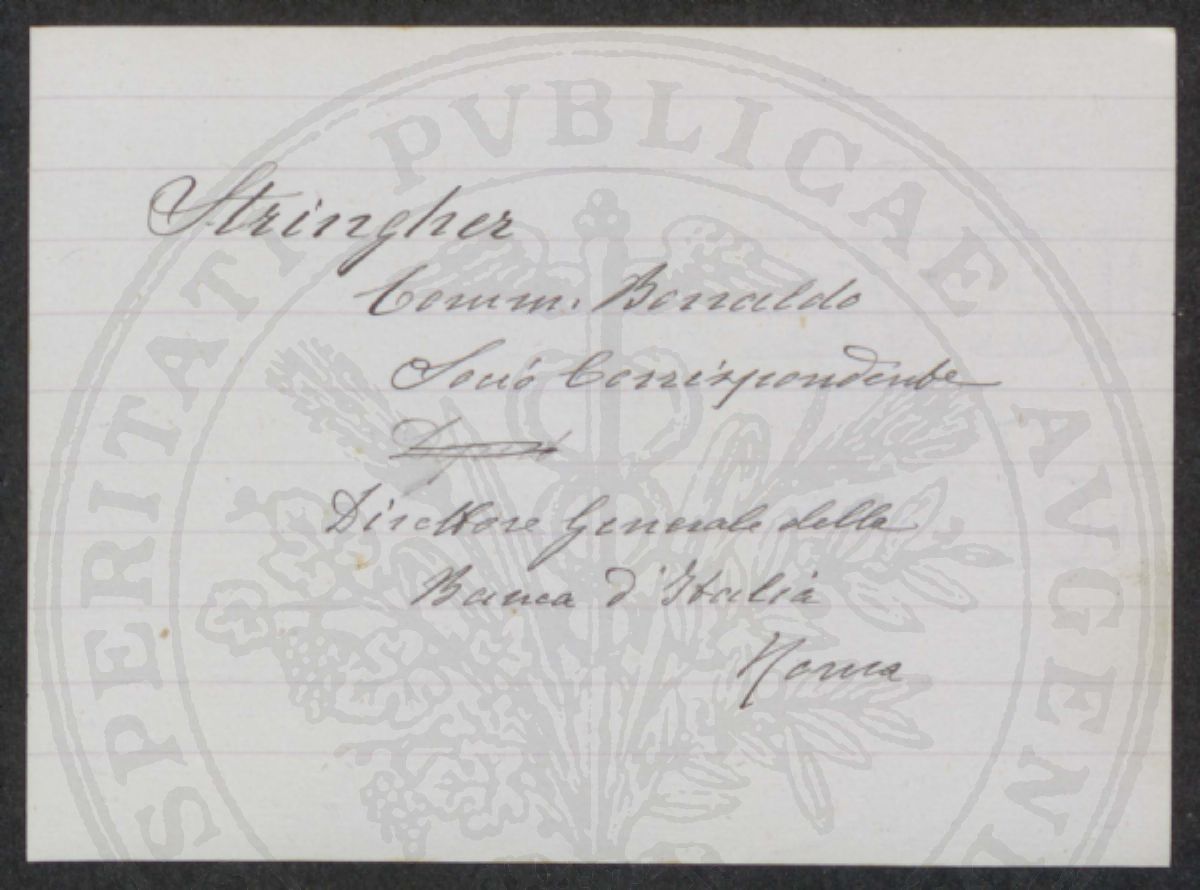 PROSPERITATI PVBLICAE AVGENDAE
Stringher
Comm. Bonaldo
Socio Corrispondente
Direttore Generale della
Banca d'Italia
Roma